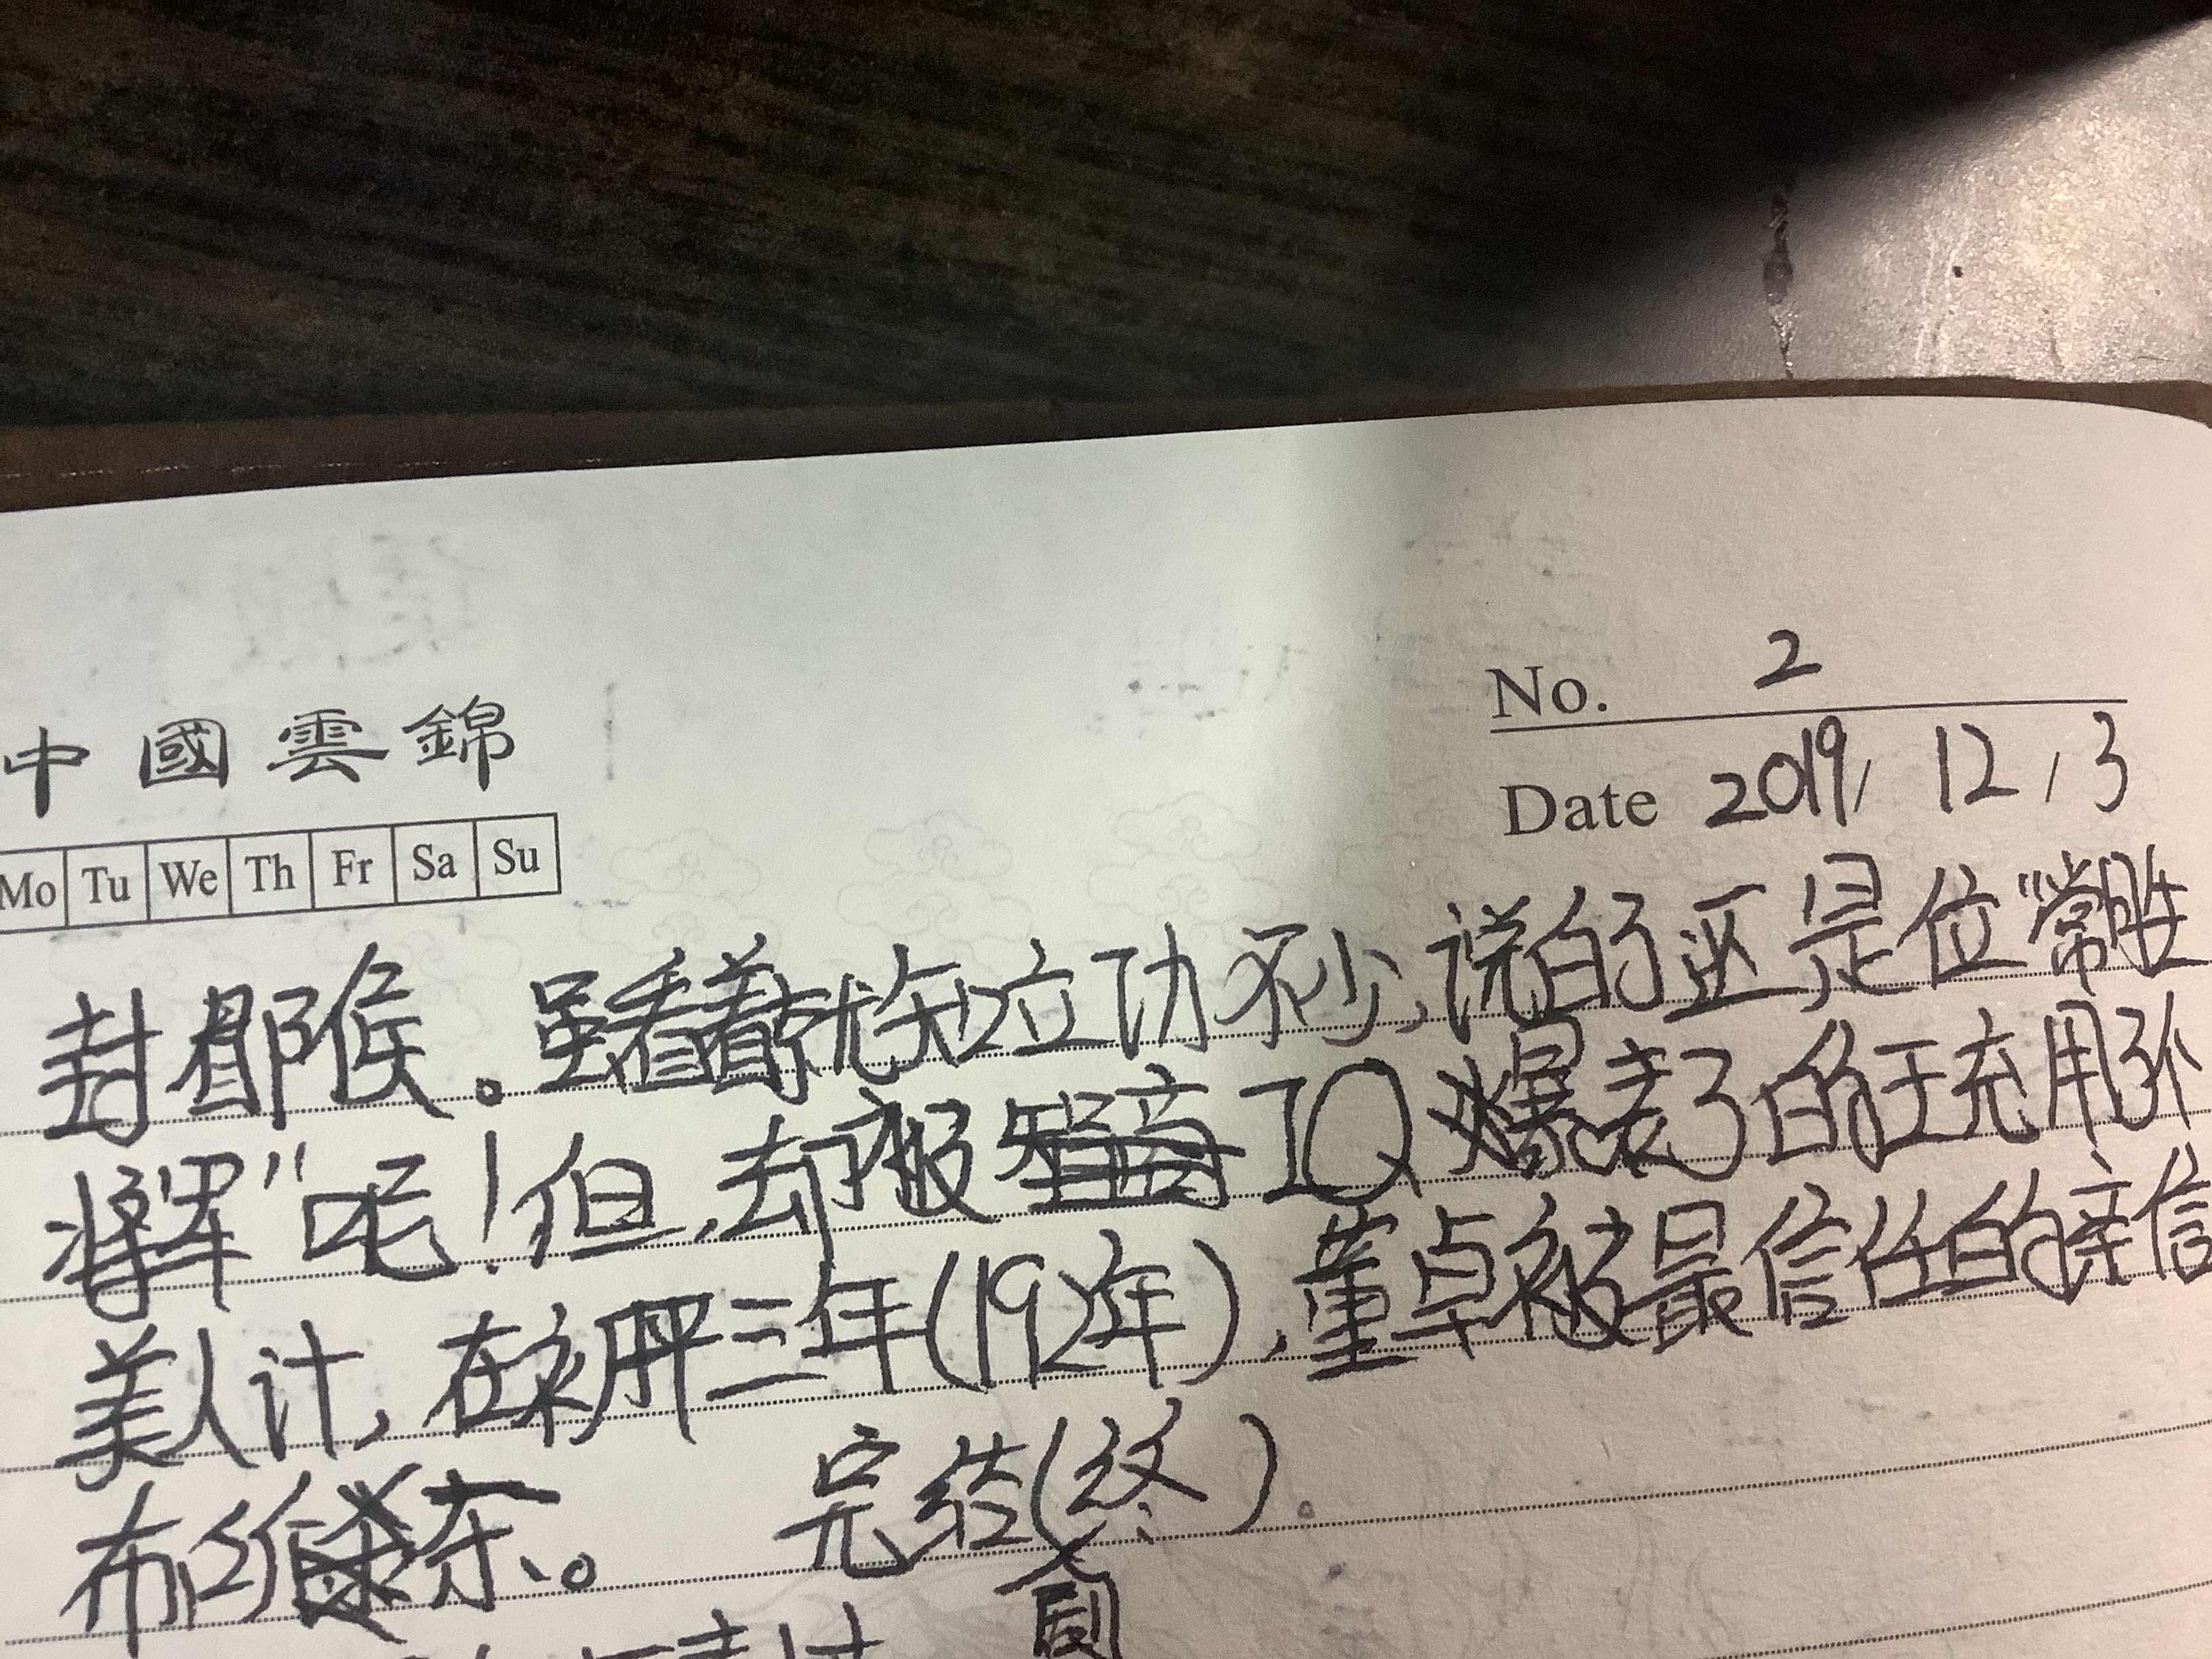 No. 2
中國雲錦
Date 2019, 12, 3
Mo Tu We Th Fr Sa Su
封都候。虽看着就知立功不少,说的了还是位“常胜
将军”吧!但,却被智商IQ爆表了的王允用环
美人计,在初平三年(192年),董卓被最信任的亲信
布给杀。 完结(终).
剧